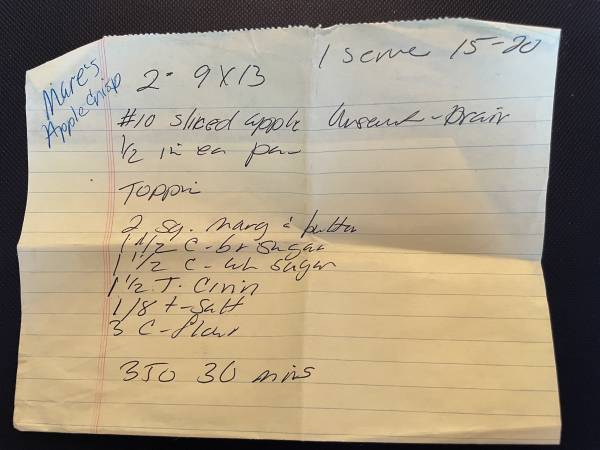 Mare's
Apple Crisp
1 serve 15-20
2- 9x13
#10 sliced apple Unsweet-Drain
1/2 in ea pan
Toppin
2 sq. marg & butter
1 1/2 C-br sugar
1 1/2 C-wh sugar
1 1/2 T. Cinn
1/8 t-salt
3 C-flour
350 30 mins